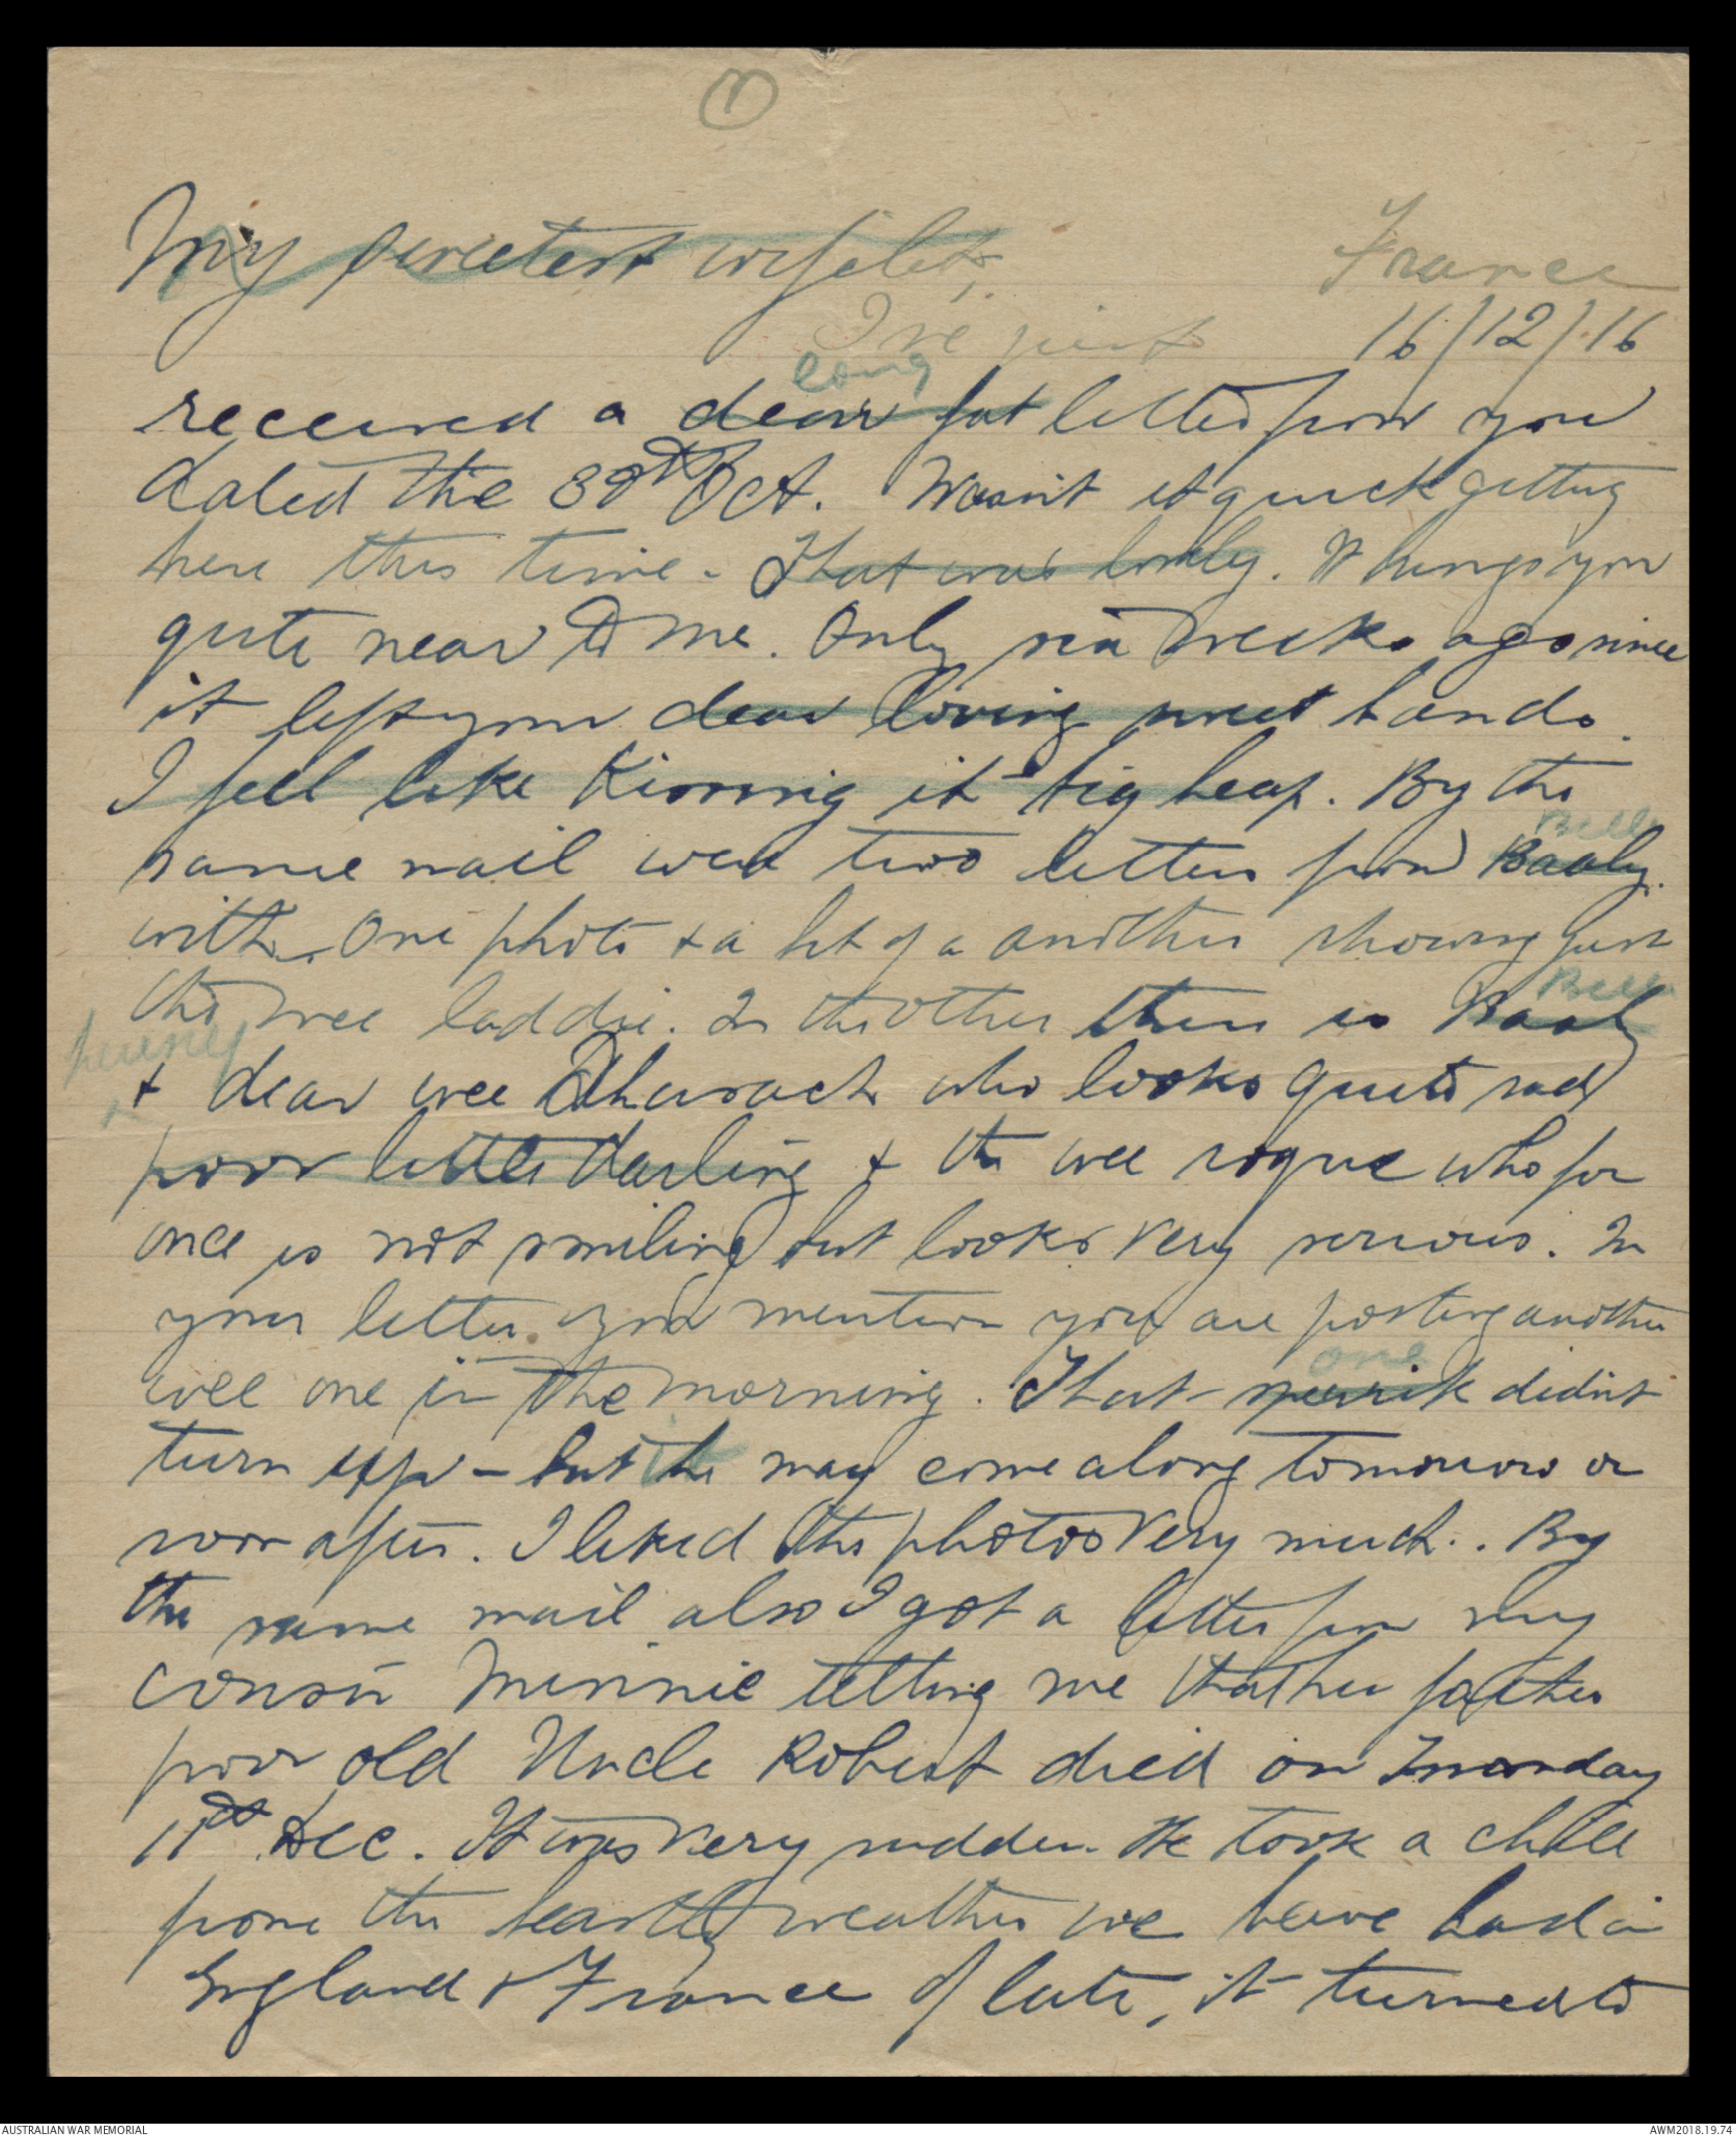 ①
My sweetest wifelet,
France
I've just
16/12/16
long
received a dear fat letter from you
dated the 30th Oct. Wasn't it quick getting
here this time - That was lovely. It brings you
quite near to me. Only six weeks ago since
it left your dear loving sweet hands.
I feel like kissing it big heap. By the
Bill
same mail were two letters from Baaly
with one photo & a bit of a another showing just
the wee laddie. In the other there is Baaly
Bill
& dear wee who looks quite sad
poor little darling & the wee rogue who for
once is not smiling but looks very serious. In
your letter you mention you are posting another
one
wee one in the morning. That didn't
turn up - but he may come along tomorrow or
it
soon after. I liked the photos very much.. By
the same mail also I got a letter from my
cousin Minnie telling me that her father
poor old Uncle Robert died on Monday
11th Dec. It was very sudden. He took a chill
from the beastly weather we have had in
England & France of late, it turned to
AUSTRALIAN WAR MEMORIAL
AWM2018.19.74